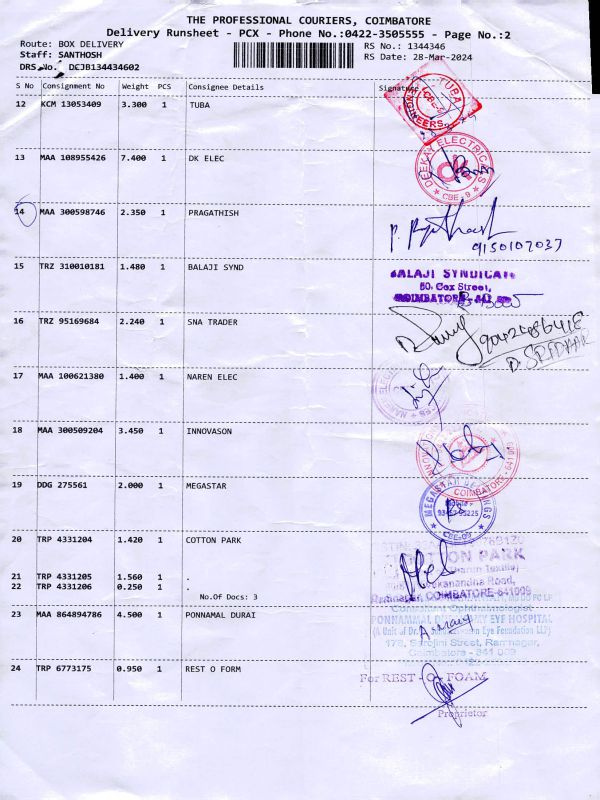 THE PROFESSIONAL COURIERS, COIMBATORE
Delivery Runsheet - PCX - Phone No.:0422-3505555 - Page No.:2
Route: BOX DELIVERY RS No.: 1344346
Staff: SANTHOSH RS Date: 28-Mar-2024
DRS No. DCJB134434602
S No Consignment No Weight PCS Consignee Details Signature
12 KCM 13053409 3.300 1 TUBA
TUBA
ENGINEERS
13 MAA 108955426 7.400 1 DK ELEC
DEEKAY ELECTRICALS
CBE-9
14 MAA 300598746 2.350 1 PRAGATHISH
9150107037
15 TRZ 310010181 1.480 1 BALAJI SYND
BALAJI SYNDICATE
50, Cox Street,
COIMBATORE
16 TRZ 95169684 2.240 1 SNA TRADER
D. SRIDHAR
17 MAA 100621380 1.400 1 NAREN ELEC
18 MAA 300509204 3.450 1 INNOVASON
COIMBATORE - 641 009
19 DDG 275561 2.000 1 MEGASTAR
MEGASTAR
CBE-09
20 TRP 4331204 1.420 1 COTTON PARK
COTTON PARK
21 TRP 4331205 1.560 1 .
22 TRP 4331206 0.250 1 .
Vivekanandha Road,
Ramnagar, COIMBATORE-641009
No.Of Docs: 3
23 MAA 864894786 4.500 1 PONNAMAL DURAI
Consultant Ophthalmologist
PONNAMMAL DURAISAMY EYE HOSPITAL
178, Sarojini Street, Ramnagar,
Coimbatore - 641 009
24 TRP 6773175 0.950 1 REST O FORM
For REST - O - FOAM
Proprietor